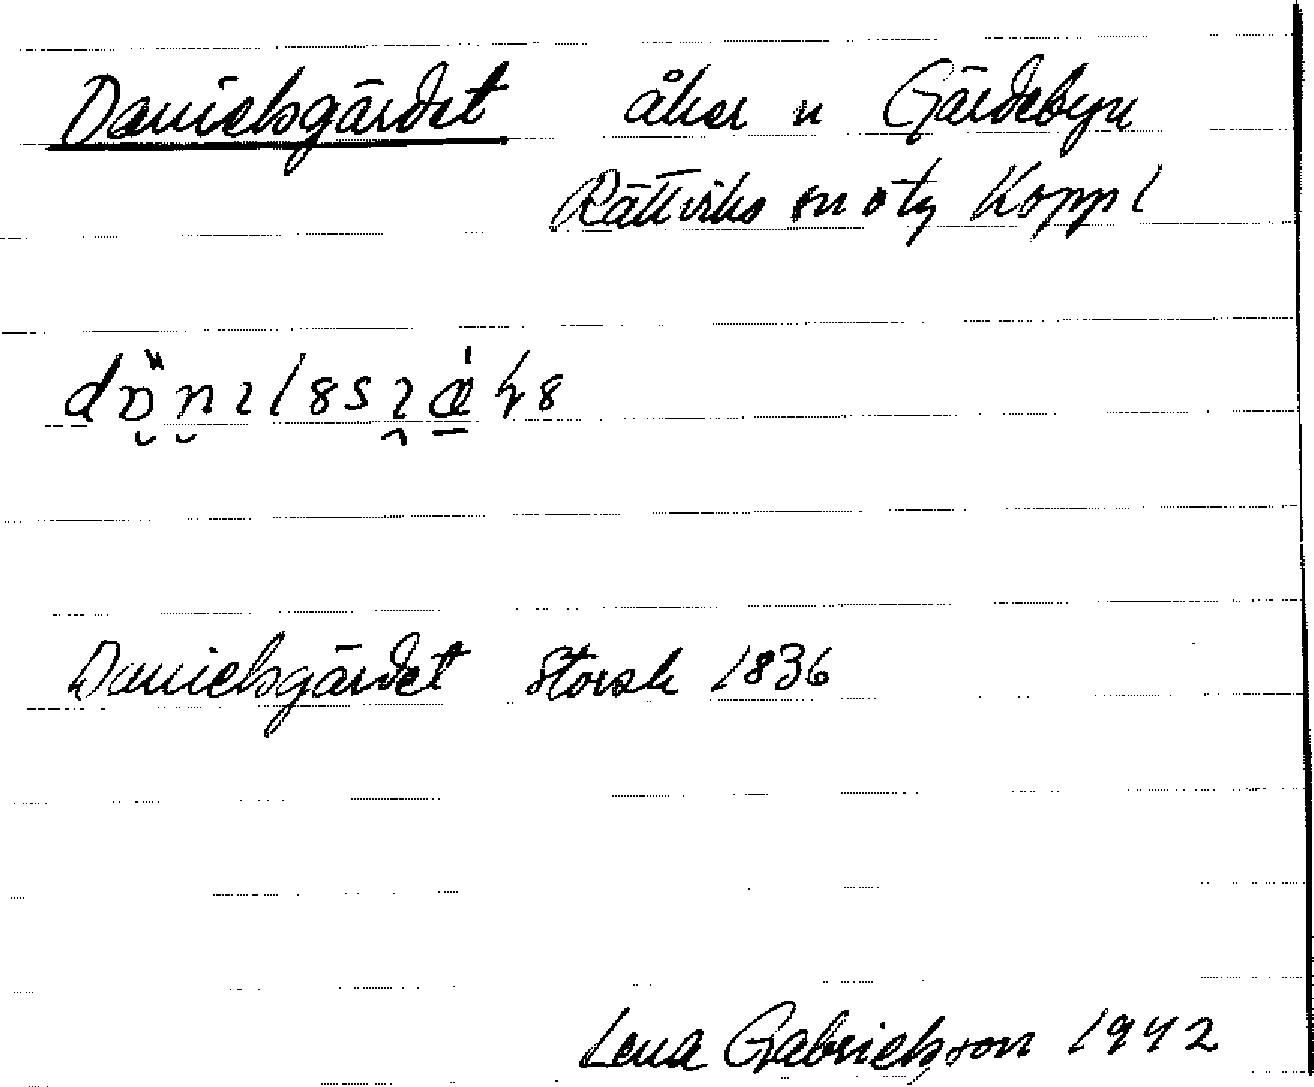 Danielsgärdet åker n Gärdebyn
Rättviks sn o tg Koppl
Danielsgärdet Storsk 1836
Lena Gabrielsson 1942